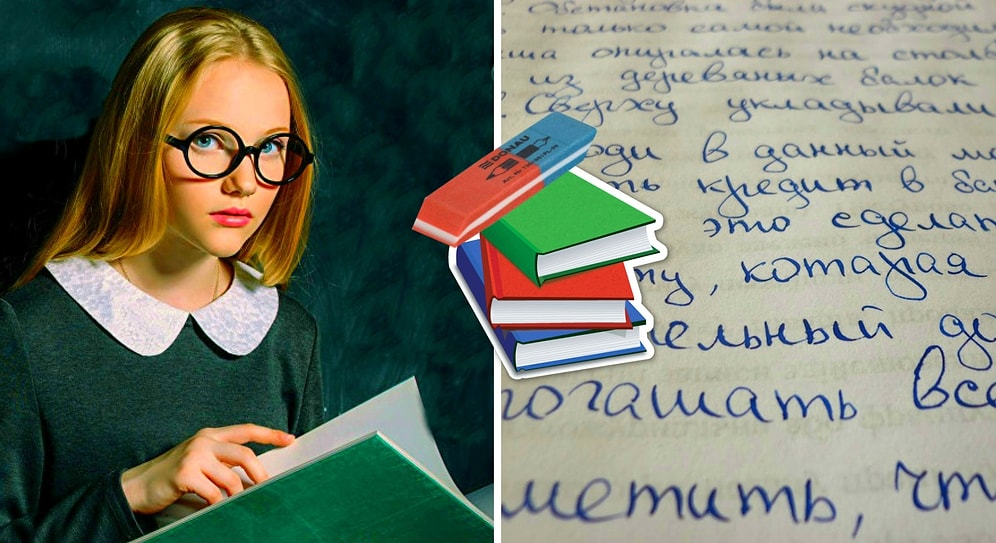 Обстановка была скудной
только самой необходи
ша опиралась на столб
из деревяных балок
Сверху укладывали
DONAU
оди в данный м
ть кредит в ба
это сделат
ту, которая
ельный до
погашать все
метить, чт